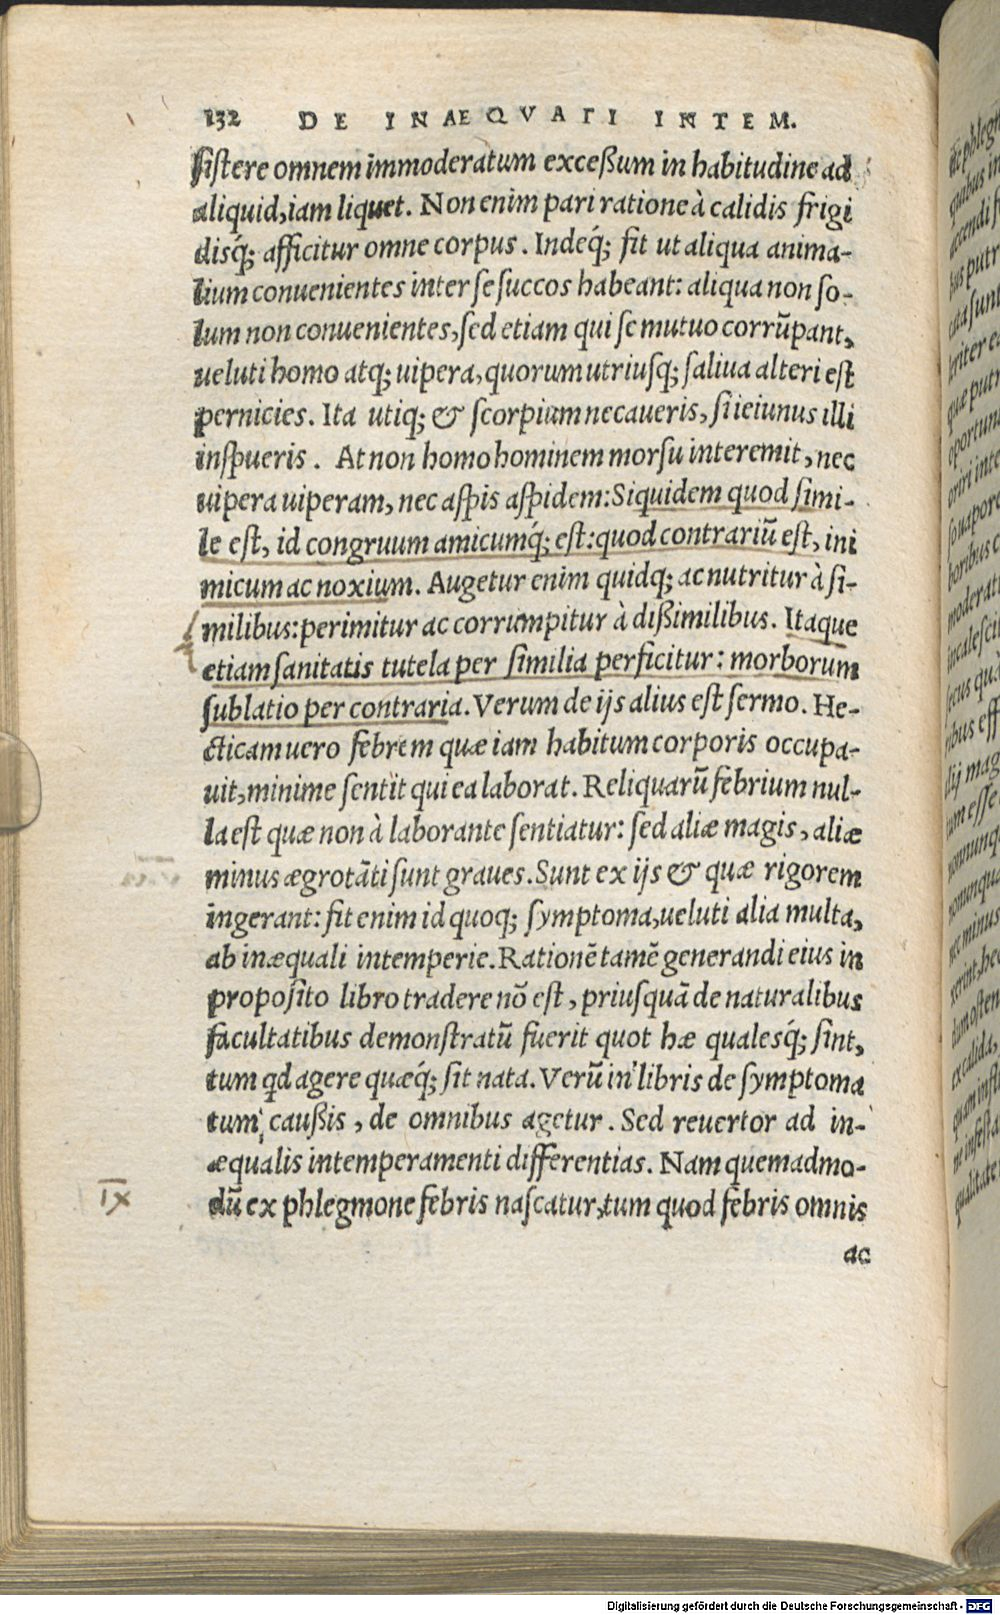 132 DE INAEQVALI INTEM.
ſiſtere omnem immoderatum exceßum in habitudine ad
aliquid, iam liquet. Non enim pari ratione à calidis frigi
disq́; afficitur omne corpus. Indeq́; fit ut aliqua anima-
lium conuenientes inter ſe ſuccos habeant: aliqua non ſo-
lum non conuenientes, ſed etiam qui ſe mutuo corrūpant,
ueluti homo atq; uipera, quorum utriuſq; ſaliua alteri eſt
pernicies. Ita utiq; & ſcorpium necaueris, ſi ieiunus illi
inſpueris. At non homo hominem morſu interemit, nec
uipera uiperam, nec aſpis aſpidem: Siquidem quod ſimi-
le eſt, id congruum amicumq́; eſt: quod contrariū eſt, ini
micum ac noxium. Augetur enim quidq; ac nutritur à ſi-
milibus: perimitur ac corrumpitur à dißimilibus. Itaque
etiam ſanitatis tutela per ſimilia perficitur: morborum
ſublatio per contraria. Verum de ijs alius eſt ſermo. He-
cticam uero febrem quæ iam habitum corporis occupa-
uit, minime ſentit qui ea laborat. Reliquarū febrium nul-
la eſt quæ non à laborante ſentiatur: ſed aliæ magis, aliæ
minus ægrotāti ſunt graues. Sunt ex ijs & quæ rigorem
ingerant: fit enim id quoq; ſymptoma, ueluti alia multa,
ab inæquali intemperie. Rationē tamē generandi eius in
propoſito libro tradere nō eſt, priuſquā de naturalibus
facultatibus demonſtratū fuerit quot hæ qualesq́; ſint,
tum qd agere quæq́; ſit nata. Verū in libris de ſymptoma
tum caußis, de omnibus agetur. Sed reuertor ad in-
æqualis intemperamenti differentias. Nam quemadmo-
IX
dū ex phlegmone febris naſcatur, tum quod febris omnis
ac
Digitalisierung gefördert durch die Deutsche Forschungsgemeinschaft - DFG